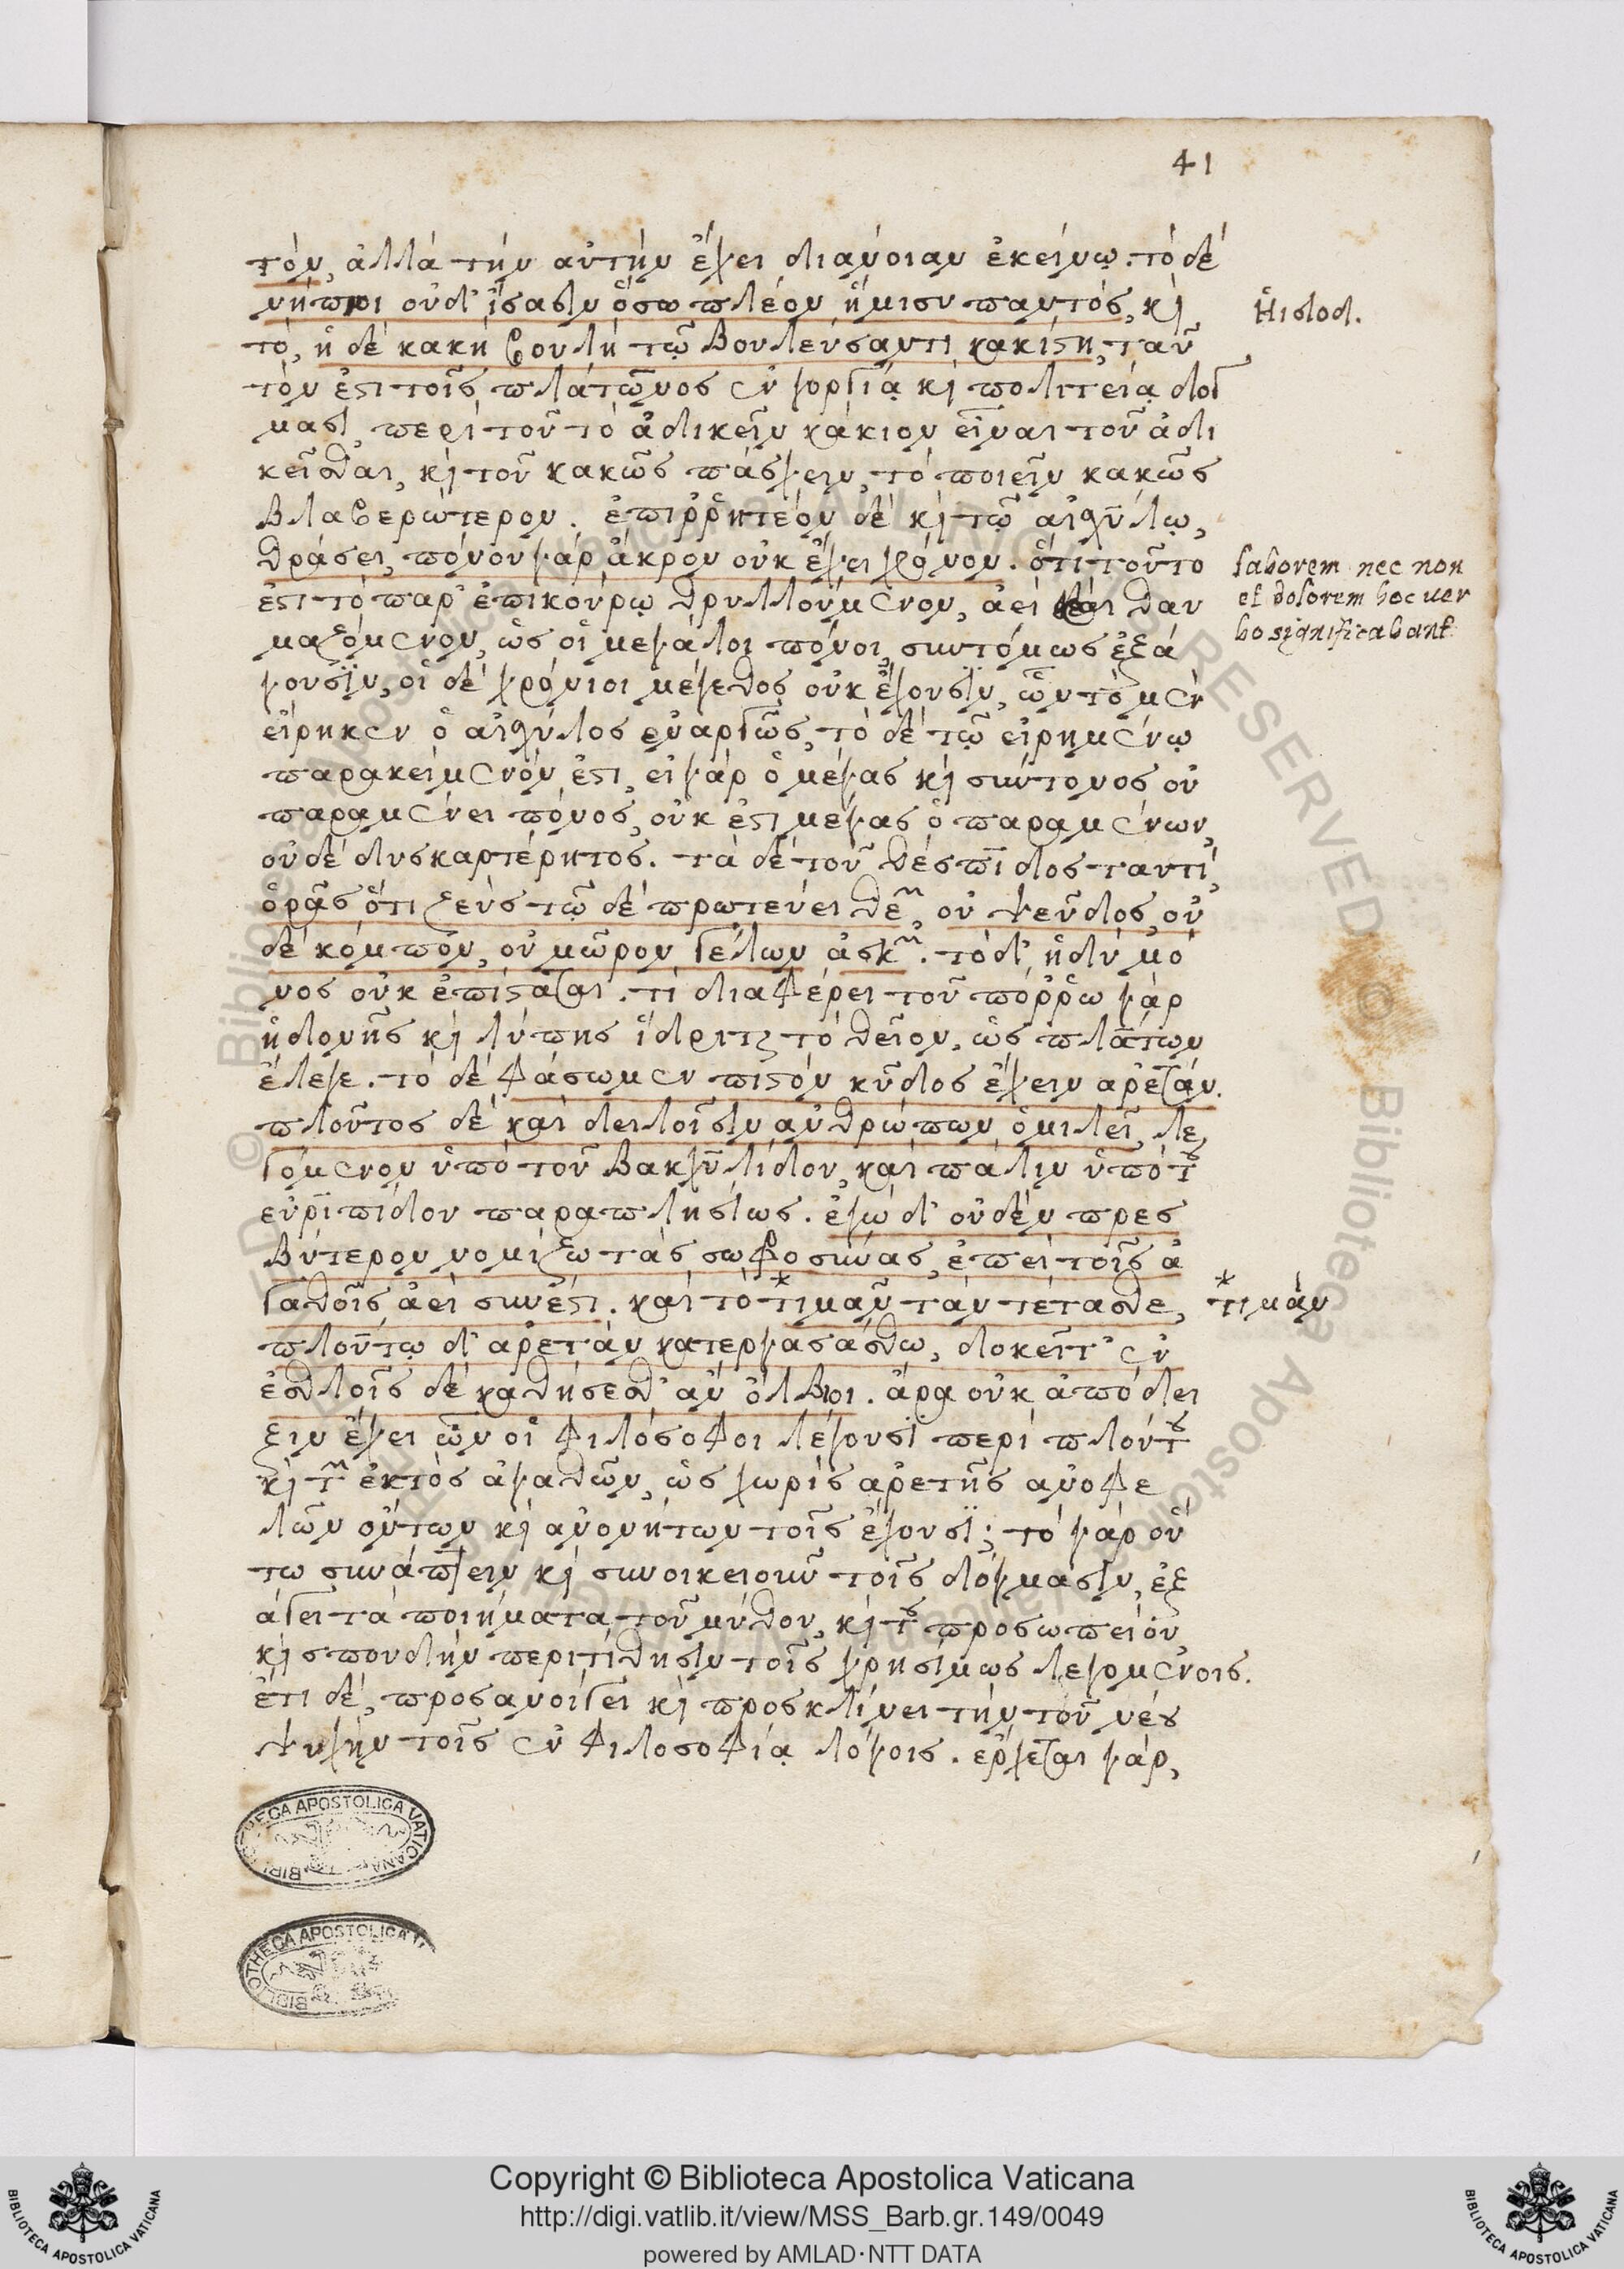 41
τόν, ἀλλὰ τὴν αὐτὴν ἔχει διάνοιαν ἐκείνῳ. τὸ δὲ
νήπιοι οὐδ' ἴσασιν ὅσῳ πλέον ἥμισυ παντός, κὶ
Ἡισιοδ.
τὸ, ἡ δὲ κακὴ βουλὴ τῷ βουλεύσαντι κακίστη, ταυ
τόν ἐστι τοῖς πλάτωνος ἐν γοργίᾳ κὶ πολιτείᾳ δόγ
μασι, περὶ τοῦ τὸ ἀδικεῖν κάκιον εἶναι τοῦ ἀδι
κεῖσθαι, κὶ τοῦ κακῶς πάσχειν, τὸ ποιεῖν κακῶς
βλαβερώτερον. ἐπιῤῥητέον δὲ κὶ τῷ αἰσχύλῳ,
θράσει, πόνου γὰρ ἄκρον οὐκ ἔχει χρόνον. ὅτι τοῦτο
laborem nec non
et dolorem hoc ver
bo significabant
ἐστι τὸ παρ' ἐπικούρῳ θρυλλούμενον, ἀεὶ καὶ θαυ
μαζόμενον, ὡς οἱ μεγάλοι πόνοι, συντόμως ἐξά
γουσϊν, οἱ δὲ χρόνιοι μέγεθος οὐκ ἔχουσϊν, ὧν τὸ μὲν
εἴρηκεν ὁ αἰσχύλος ἐναργῶς, τὸ δὲ τῷ εἰρημένῳ
παρακείμενόν ἐστι, εἰ γὰρ ὁ μέγας κὶ σύντονος οὐ
παραμένει πόνος, οὐκ ἔστι μέγας ὁ παραμένων,
οὐδὲ δυσκαρτέρητος. τὰ δὲ τοῦ θέσπϊδος ταυτὶ,
ὁρᾷς ὅτι ζεὺς τῷ δὲ πρωτεύει θεῶν, οὐ ψεῦδος, οὐ
δὲ κόμπον, οὐ μῶρον γέλων ἀσκῶν. τὸ δ' ἡδὺ μό
νος οὐκ ἐπίσταται. τί διαφέρει τοῦ πόῤῥω γὰρ
ἡδονῆς κὶ λύπης ἵδρυται τὸ θεῖον, ὡς πλάτων
ἔλεγε. τὸ δὲ φάσωμεν πιστὸν κῦδος ἔχειν ἀρετάν.
πλοῦτος δὲ καὶ δειλοῖσιν ἀνθρώπων ὁμιλεῖ, λε
γόμενον ὑπὸ τοῦ βακχυλίδου, καὶ πάλιν ὑπὸ τοῦ
εὐρϊπίδου παραπλησίως. ἐγὼ δ' οὐδὲν πρεσ
βύτερον νομίζω τὰς σωφροσύνας, ἐπεὶ τοῖς ἀ
γαθοῖς ἀεὶ σύνεστι. καὶ τὸ *τιμᾶν τὰν τέτασθε,
* τιμὰν
πλούτῳ δ' ἀρετὰν κατεργάσασθω, δοκεῖτ' ἐν
ἐσθλοῖς δὲ καθήσεσθ' ἂν ὄλβιοι. ἆρα οὐκ ἀπόδει
ξιν ἔχει ὧν οἱ φιλόσοφοι λέγουσϊ περὶ πλούτου
κὶ τῶν ἐκτὸς ἀγαθῶν, ὡς χωρὶς ἀρετῆς ἀνωφε
λῶν ὄντων κὶ ἀνονήτων τοῖς ἔχουσϊ; τὸ γὰρ οὕ
τω συνάπτειν κὶ συνοικειοῦν τοῖς δόγμασιν, ἐξ
άγει τὰ ποιήματα τοῦ μύθου, κὶ τοῦ προσωπείου,
κὶ σπουδὴν περιτίθησιν τοῖς χρησίμως λεγομένοις.
ἔτι δὲ, προσανοίγει κὶ προσκλίνει τὴν τοῦ νέου
ψυχὴν τοῖς ἐν φιλοσοφίᾳ λόγοις. ἔρχεται γὰρ,
BIBLIOTHECA APOSTOLICA VATICANA
BIBLIOTHECA APOSTOLICA VATICANA
Copyright © Biblioteca Apostolica Vaticana
http://digi.vatlib.it/view/MSS_Barb.gr.149/0049
powered by AMLAD·NTT DATA
BIBLIOTECA APOSTOLICA VATICANA
BIBLIOTECA APOSTOLICA VATICANA